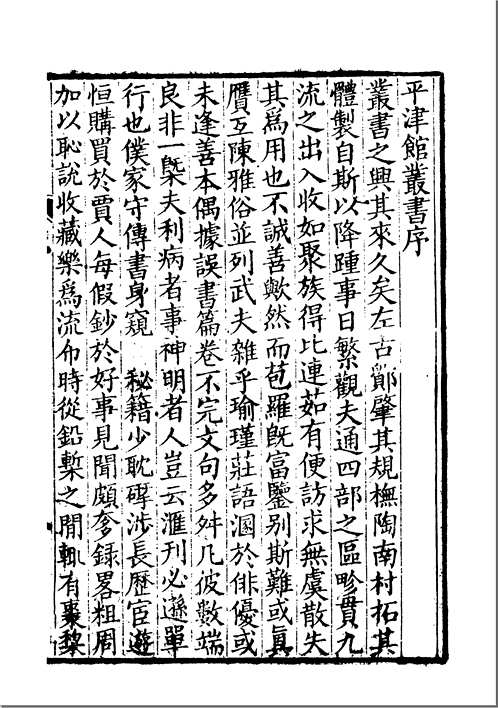 平津館叢書序
叢書之興其來久矣左古鄮肇其規橅陶南村拓其
體製自斯以降踵事日繁觀夫通四部之區畛貫九
流之出入收如聚族得比連茹有便訪求無虞散失
其爲用也不誠善歟然而苞羅旣富鑒別斯難或眞
贋互陳雅俗並列武夫雜乎瑜瑾莊語溷於俳優或
未逢善本偶據誤書篇卷不完文句多舛凡彼數端
良非一槩夫利病者事神明者人豈云滙刊必遜單
行也僕家守傳書身窺 秘籍少耽磾涉長歷宦遊
恒購買於賈人每假鈔於好事見聞頗夯録畧粗周
加以恥說收藏樂爲流布時從鉛槧之閒輒有棗棃